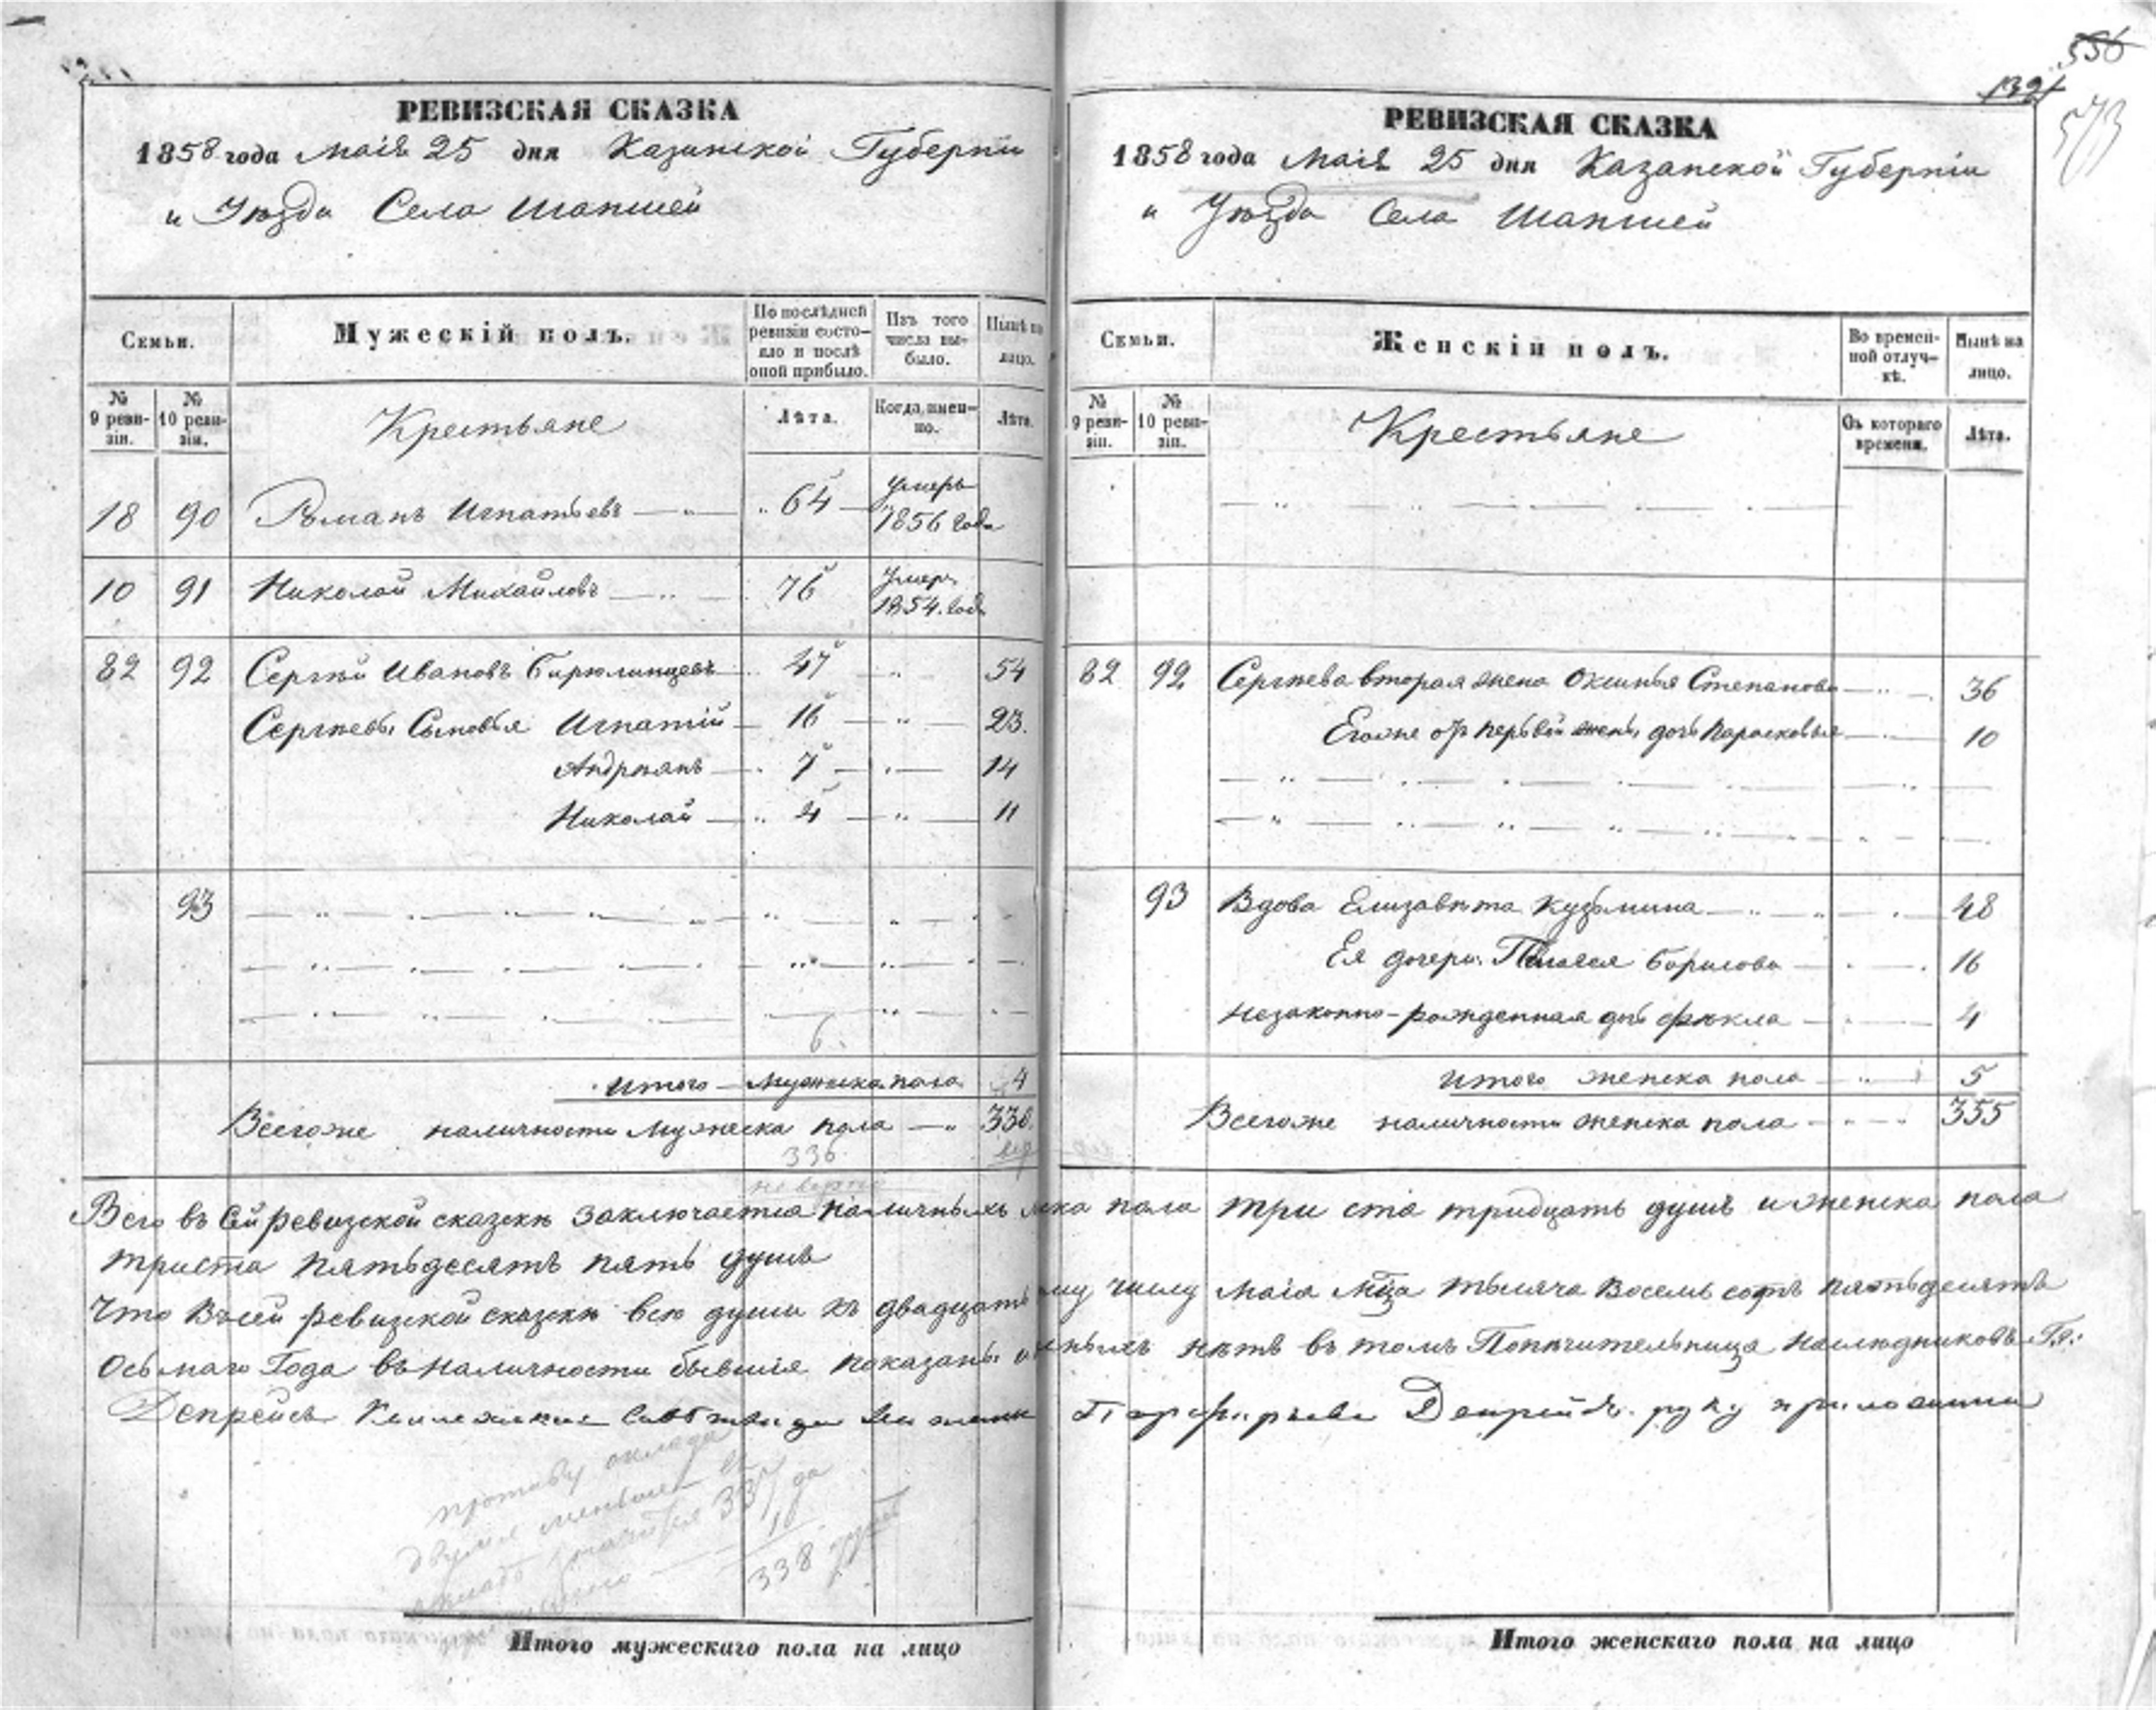 556
132
573
РЕВИЗСКАЯ СКАЗКА
1858 года Маія 25 дня Казанской Губерніи
и Уѣзда Села Шапшей
Семьи.
Мужескій полъ.
По послѣдней ревизіи состояло и послѣ оной прибыло.
Изъ того числа выбыло.
Нынѣ на лицо.
№ 9 ревизіи.
№ 10 ревизіи.
Крестьяне
Лѣта.
Когда именно.
Лѣта.
18 90 Романъ Игнатьевъ 64 Умеръ 1856 года
10 91 Николай Михайловъ 76 Умеръ 1854. года
82 92 Сергѣй Ивановъ Бирюлинцевъ 47 54
Сергѣевы Сыновья Игнатій 16 23.
Андреянъ 7 14
Николай 4 11
93
6.
Итого Мужеска пола 4
Всегоже наличности Мужеска пола 330.
336
не верно
РЕВИЗСКАЯ СКАЗКА
1858 года Маія 25 дня Казанской Губерніи
и Уѣзда Села Шапшей
Семьи.
Женскій полъ.
Во временной отлучкѣ.
Нынѣ на лицо.
№ 9 ревизіи.
№ 10 ревизіи.
Крестьяне
Съ котораго времени.
Лѣта.
82 92 Сергѣева вторая жена Оксинья Степанова 36
Егоже отъ первой жены дочь Парасковья 10
93 Вдова Елизавѣта Кузьмина 48
Ея дочери. Пелагея Борисова 16
незаконно-рожденная дочь Фекла 4
Итого женска пола 5
Всегоже наличности женска пола 355
Всего въ сей ревизской сказкѣ заключается наличныхъ мужска пола триста тридцать душъ и женска пола
триста пятьдесятъ пять душъ
Что въ сей ревизской сказкѣ всѣ души къ двадцать пятому числу Маія Мца тысяча восемь сотъ пятьдесятъ
осьмаго Года въ наличности бывшія показаны и утаенныхъ нѣтъ въ томъ Попечительница наслѣдниковъ Г.на:
Депрейсъ Порфирьева Депрейсъ. руку приложила
противу оклада
двумя менѣе въ
окладъ 337 да
1
338 душъ
Итого мужескаго пола на лицо
Итого женскаго пола на лицо